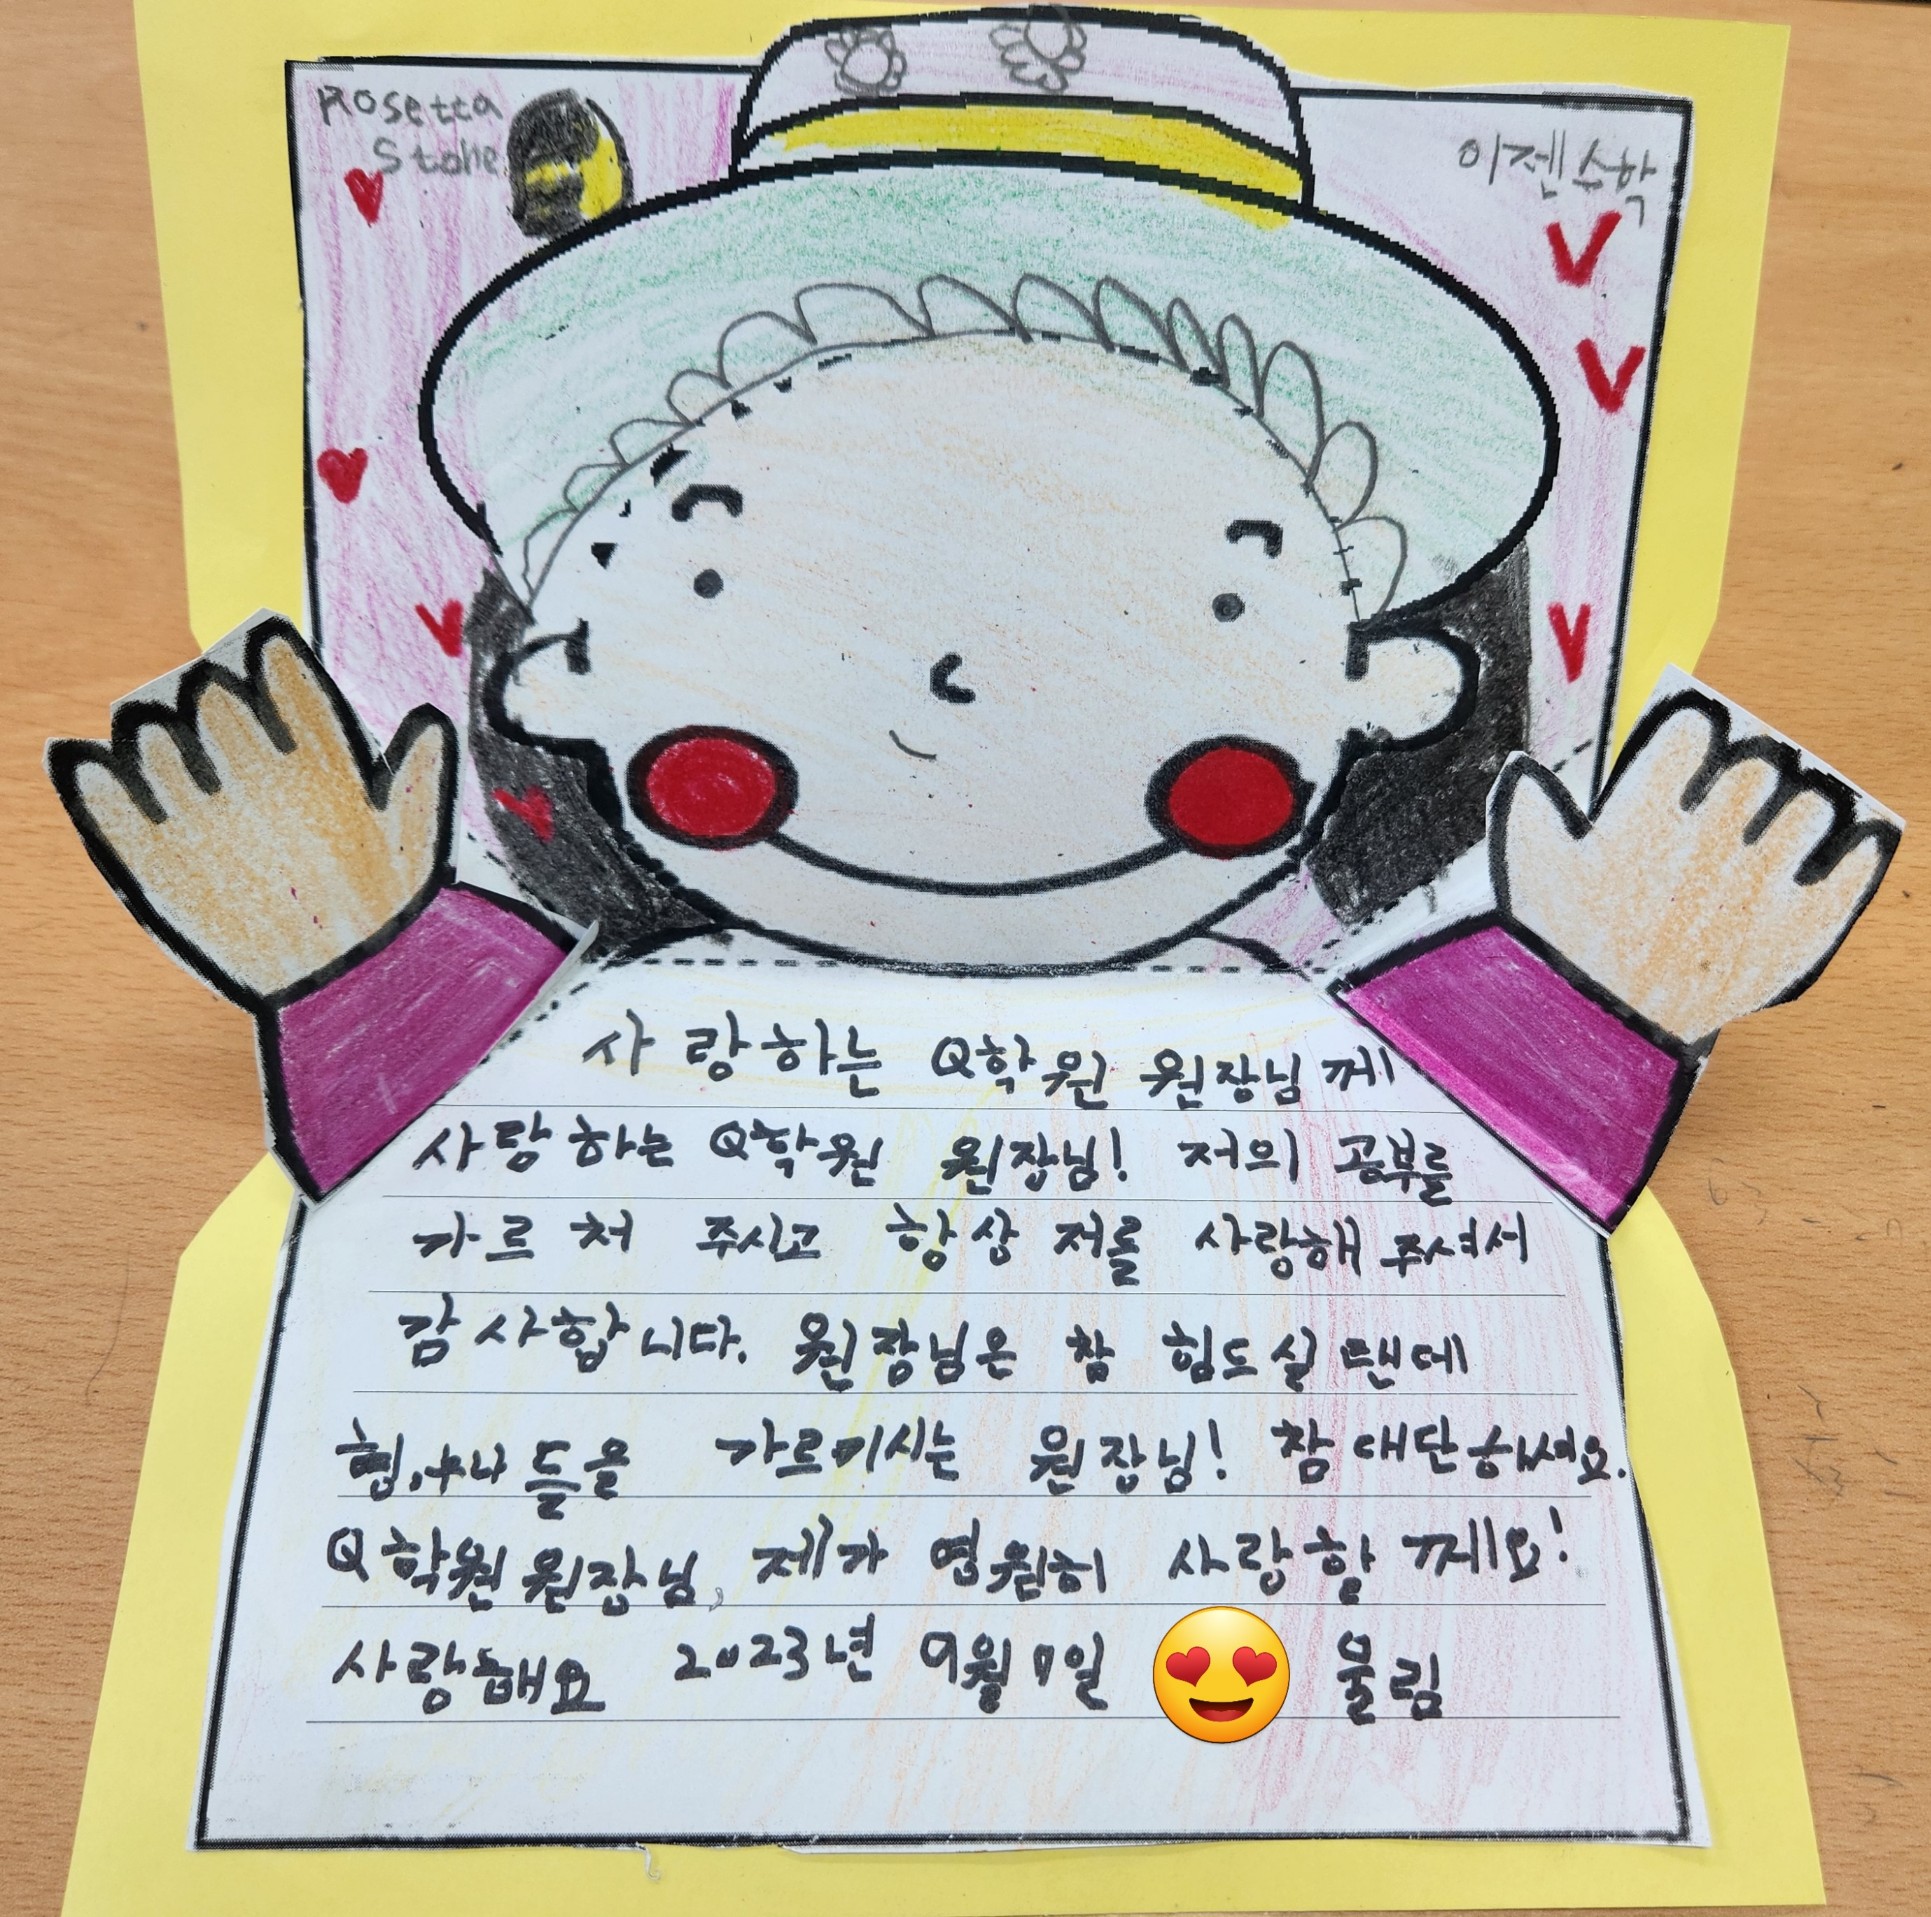 Rosetta
Stone
이젠수학
사랑하는 Q학원 원장님께
사랑하는 Q학원 원장님! 저의 공부를
가르쳐 주시고 항상 저를 사랑해 주셔서
감사합니다. 원장님은 참 힘드실텐데
형,누나들을 가르키시는 원장님! 참 대단하세요.
Q학원원장님, 제가 영원히 사랑할께요!
사랑해요 2023년 9월 7일 올림